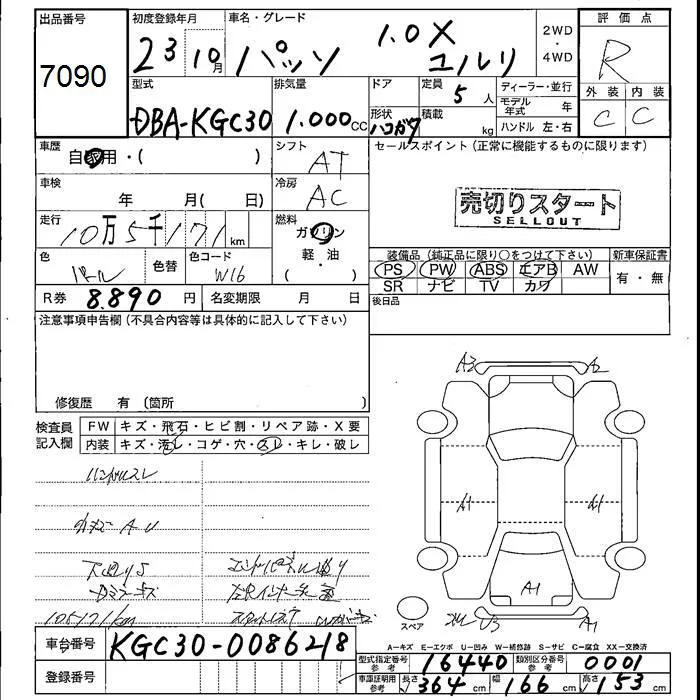 出品番号 初度登録年月 車名・グレード 2WD・4WD 評価点
7090 23 10月 パッソ 1.0X ユルリ R
型式 排気量 ドア 定員 5人 ディーラー・並行 外装 内装
DBA-KGC30 1.000CC 形状 ハコガタ 積載 kg モデル年式 年 C C
ハンドル 左・右
車歴 自家用・( ) シフト AT セールスポイント(正常に機能するものに限ります)
車検 年 月( 日) 冷房 AC 売切りスタート
SELLOUT
走行 10万5千171km 燃料 ガソリン・軽油 ( )
装備品(純正品に限り○をつけて下さい) 新車保証書
色 パール 色替 色コード W16 PS PW ABS エアB AW 有・無
SR ナビ TV カワ
R券 8.890円 名変期限 月 日 後日品
注意事項申告欄(不具合内容等は具体的に記入して下さい)
修復歴 有(箇所 )
検査員記入欄 FW キズ・飛石・ヒビ割・リペア跡・X要
内装 キズ・汚レ・コゲ・穴・スレ・キレ・破レ
ハンドルスレ
AU
105171km
A2
A1 A1
A1
U3 A1
スペア
A－キズ E－エクボ U－凹み W－補修跡 S－サビ C－腐食 XX－交換済
車台番号 KGC30-0086218
型式指定番号 参考 16440 類別区分番号 参考 0001
登録番号 車庫証明用 参考 長さ 364cm 幅 166cm 高さ 153cm